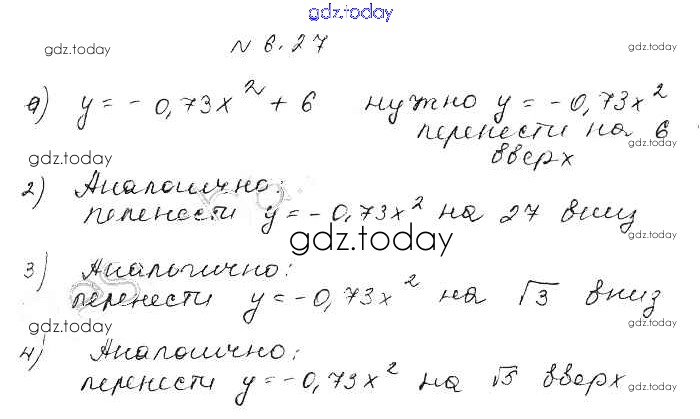 gdz.today
gdz.today № 6.27 gdz.today
а) y = -0,73x² + 6 нужно y = -0,73x²
перенести на 6 gdz.today
gdz.today вверх
2) Аналогично:
перенести y = -0,73x² на 27 вниз
gdz.today
3) Аналогично:
перенести y = -0,73x² на √3 вниз
gdz.today gdz.today
4) Аналогично:
перенести y = -0,73x² на √5 вверх
gdz.today gdz.today